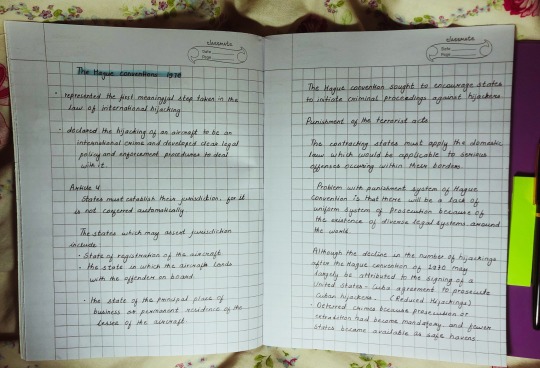 classmate
Date
Page
The Hague conventions 1970
• represented the first meaningful step taken in the
law of international hijacking
• declared the hijacking of an aircraft to be an
international crimes and developed clear legal
policy and enforcement procedures to deal
with it.
Article 4
States must establish their jurisdiction, for it
is not conferred automatically
The states which may assert jurisdiction
include
• State of registration of the aircraft
• the state in which the aircraft lands
with the offender on board.
• the state of the principal place of
business or permanent residence of the
lessee of the aircraft.
classmate
Date
Page
The Hague convention sought to encourage states
to initiate criminal proceedings against hijackers
Punishment of the terrorist acts
The contracting states must apply the domestic
law which would be applicable to serious
offenses occuring within their borders.
Problem with punishment system of Hague
Convention is that there will be a lack of
uniform system of Prosecution because of
the existence of diverse legal systems around
the world.
Although the decline in the number of hijackings
after the Hague convention of 1970 may
largely be attributed to the signing of a
United States - Cuba agreement to prosecute
Cuban hijackers. (Reduced Hijackings)
• Deterred crimes because prosecution or
extradition had become mandatory, and fewer
States became available as safe havens